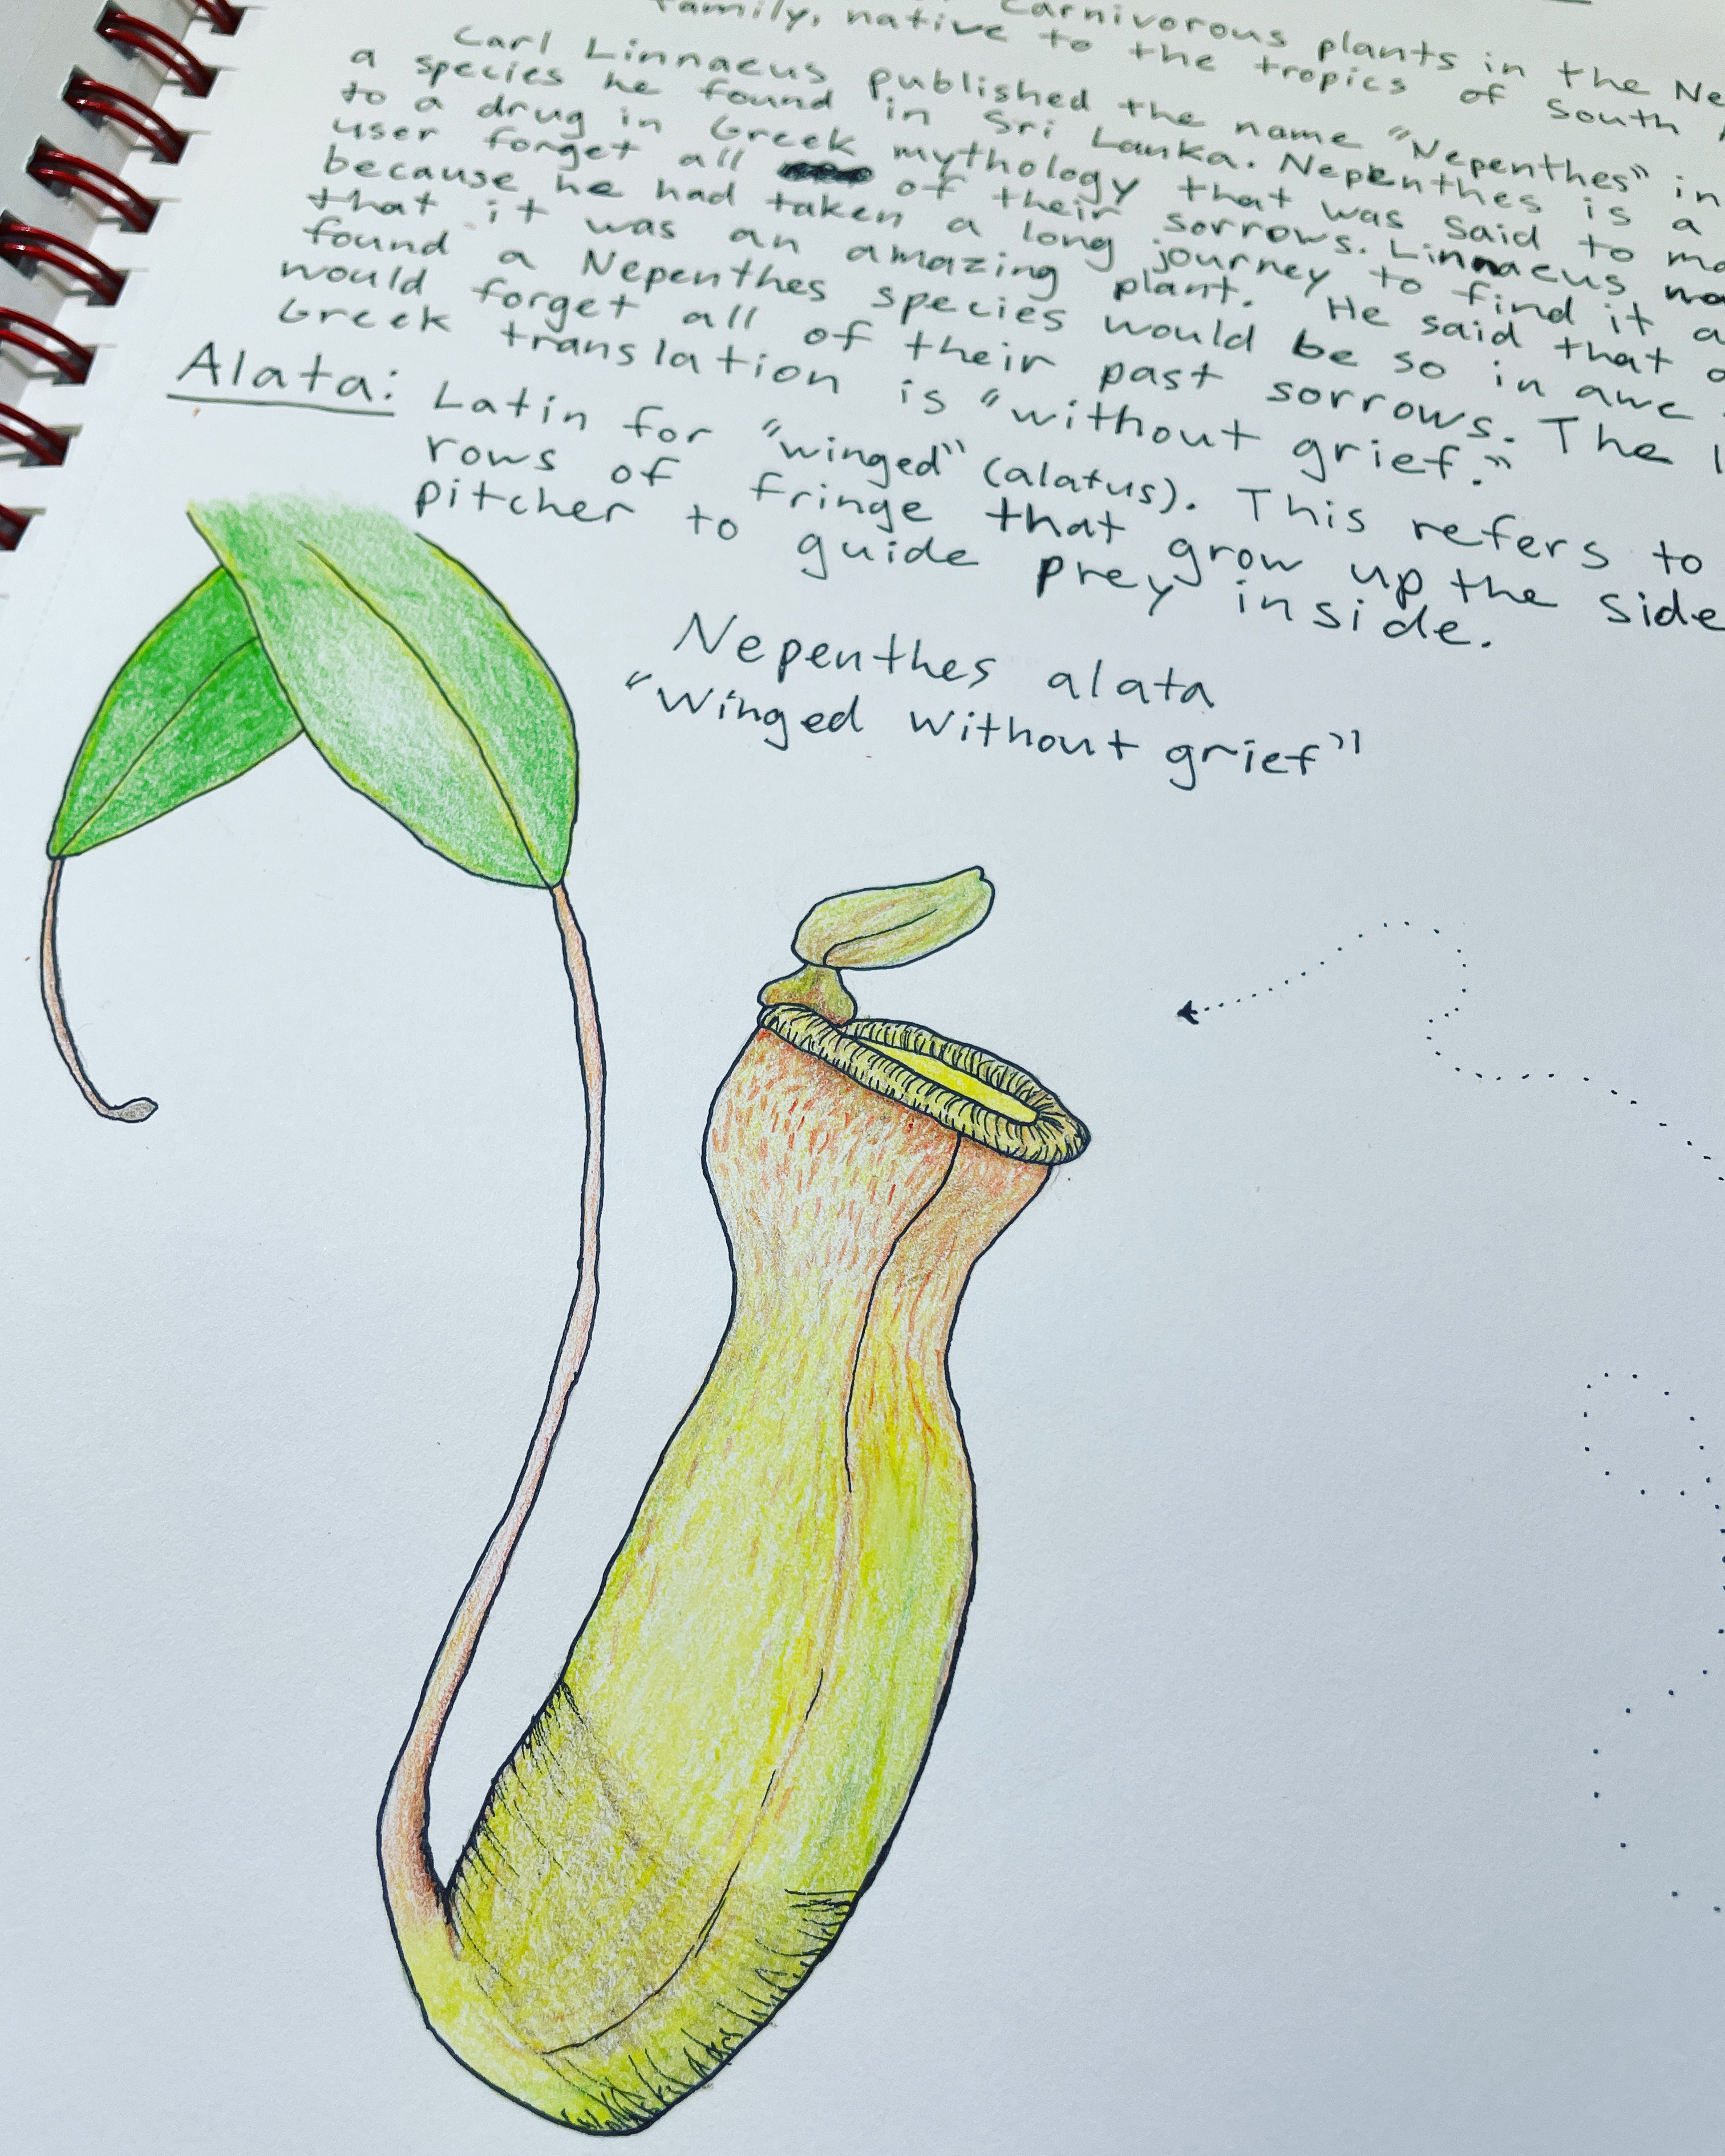 carnivorous plants in the Ne
family, native to the tropics of South
Carl Linnaeus published the name "Nepenthes" in
a species he found in Sri Lanka. Nepenthes is a
to a drug in Greek mythology that was said to ma
user forget all of their sorrows. Linnaeus
because he had taken a long journey to find it a
that it was an amazing plant. He said that
found a Nepenthes species would be so in awe
would forget all of their past sorrows. The
Greek translation is "without grief."
Alata: Latin for "winged" (alatus). This refers to
rows of fringe that grow up the side
pitcher to guide prey inside.
Nepenthes alata
"Winged Without grief"